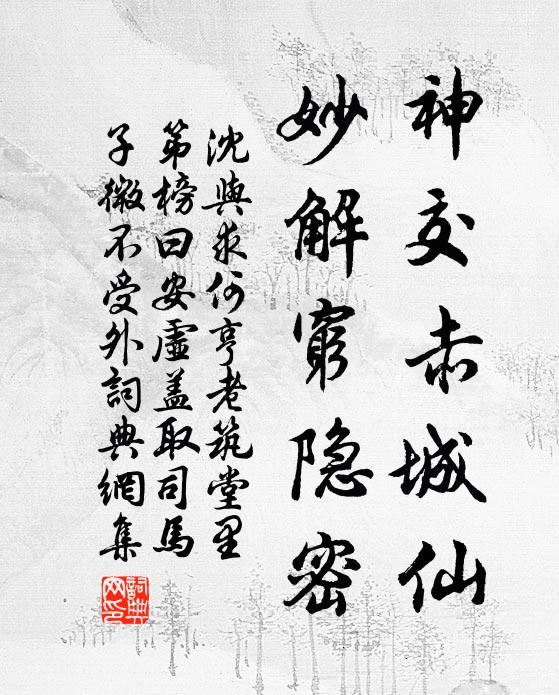 神交赤城仙
妙解窮隐密
沈與求何亨老筑堂里
第榜曰安虛盖取司馬
子微不受外詞典網集
詞典
网印